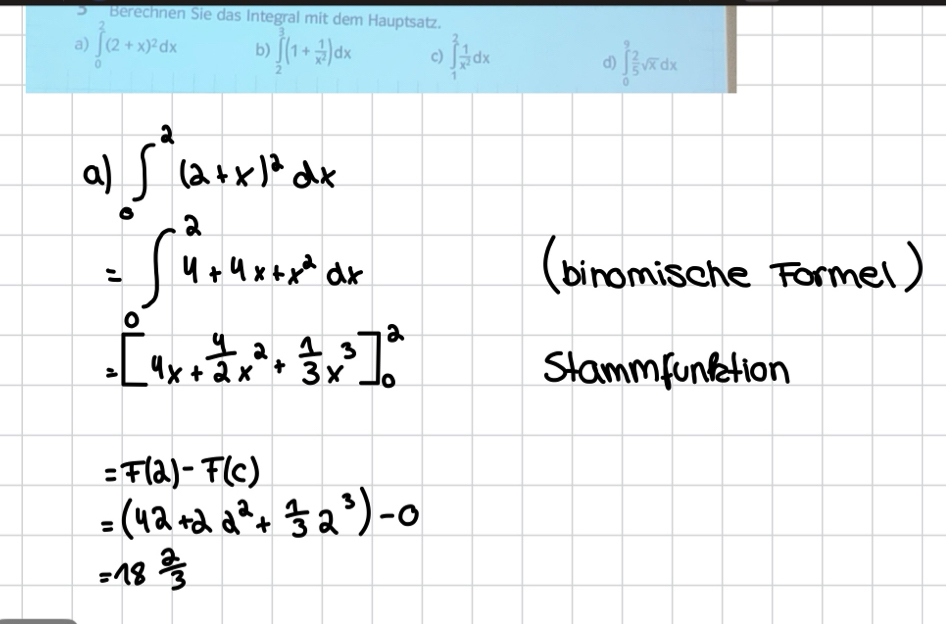 5 Berechnen Sie das Integral mit dem Hauptsatz.
a) ∫₀² (2 + x)² dx b) ∫₂³ (1 + 1/x²) dx c) ∫₁² 1/x² dx d) ∫₀⁹ 2/5 √x dx
a) ∫₀² (2 + x)² dx
= ∫₀² 4 + 4x + x² dx (binomische Formel)
= [4x + 4/2 x² + 1/3 x³]₀² Stammfunktion
= F(2) - F(c)
= (42 + 2 2² + 1/3 2³) - 0
= 18 2/3